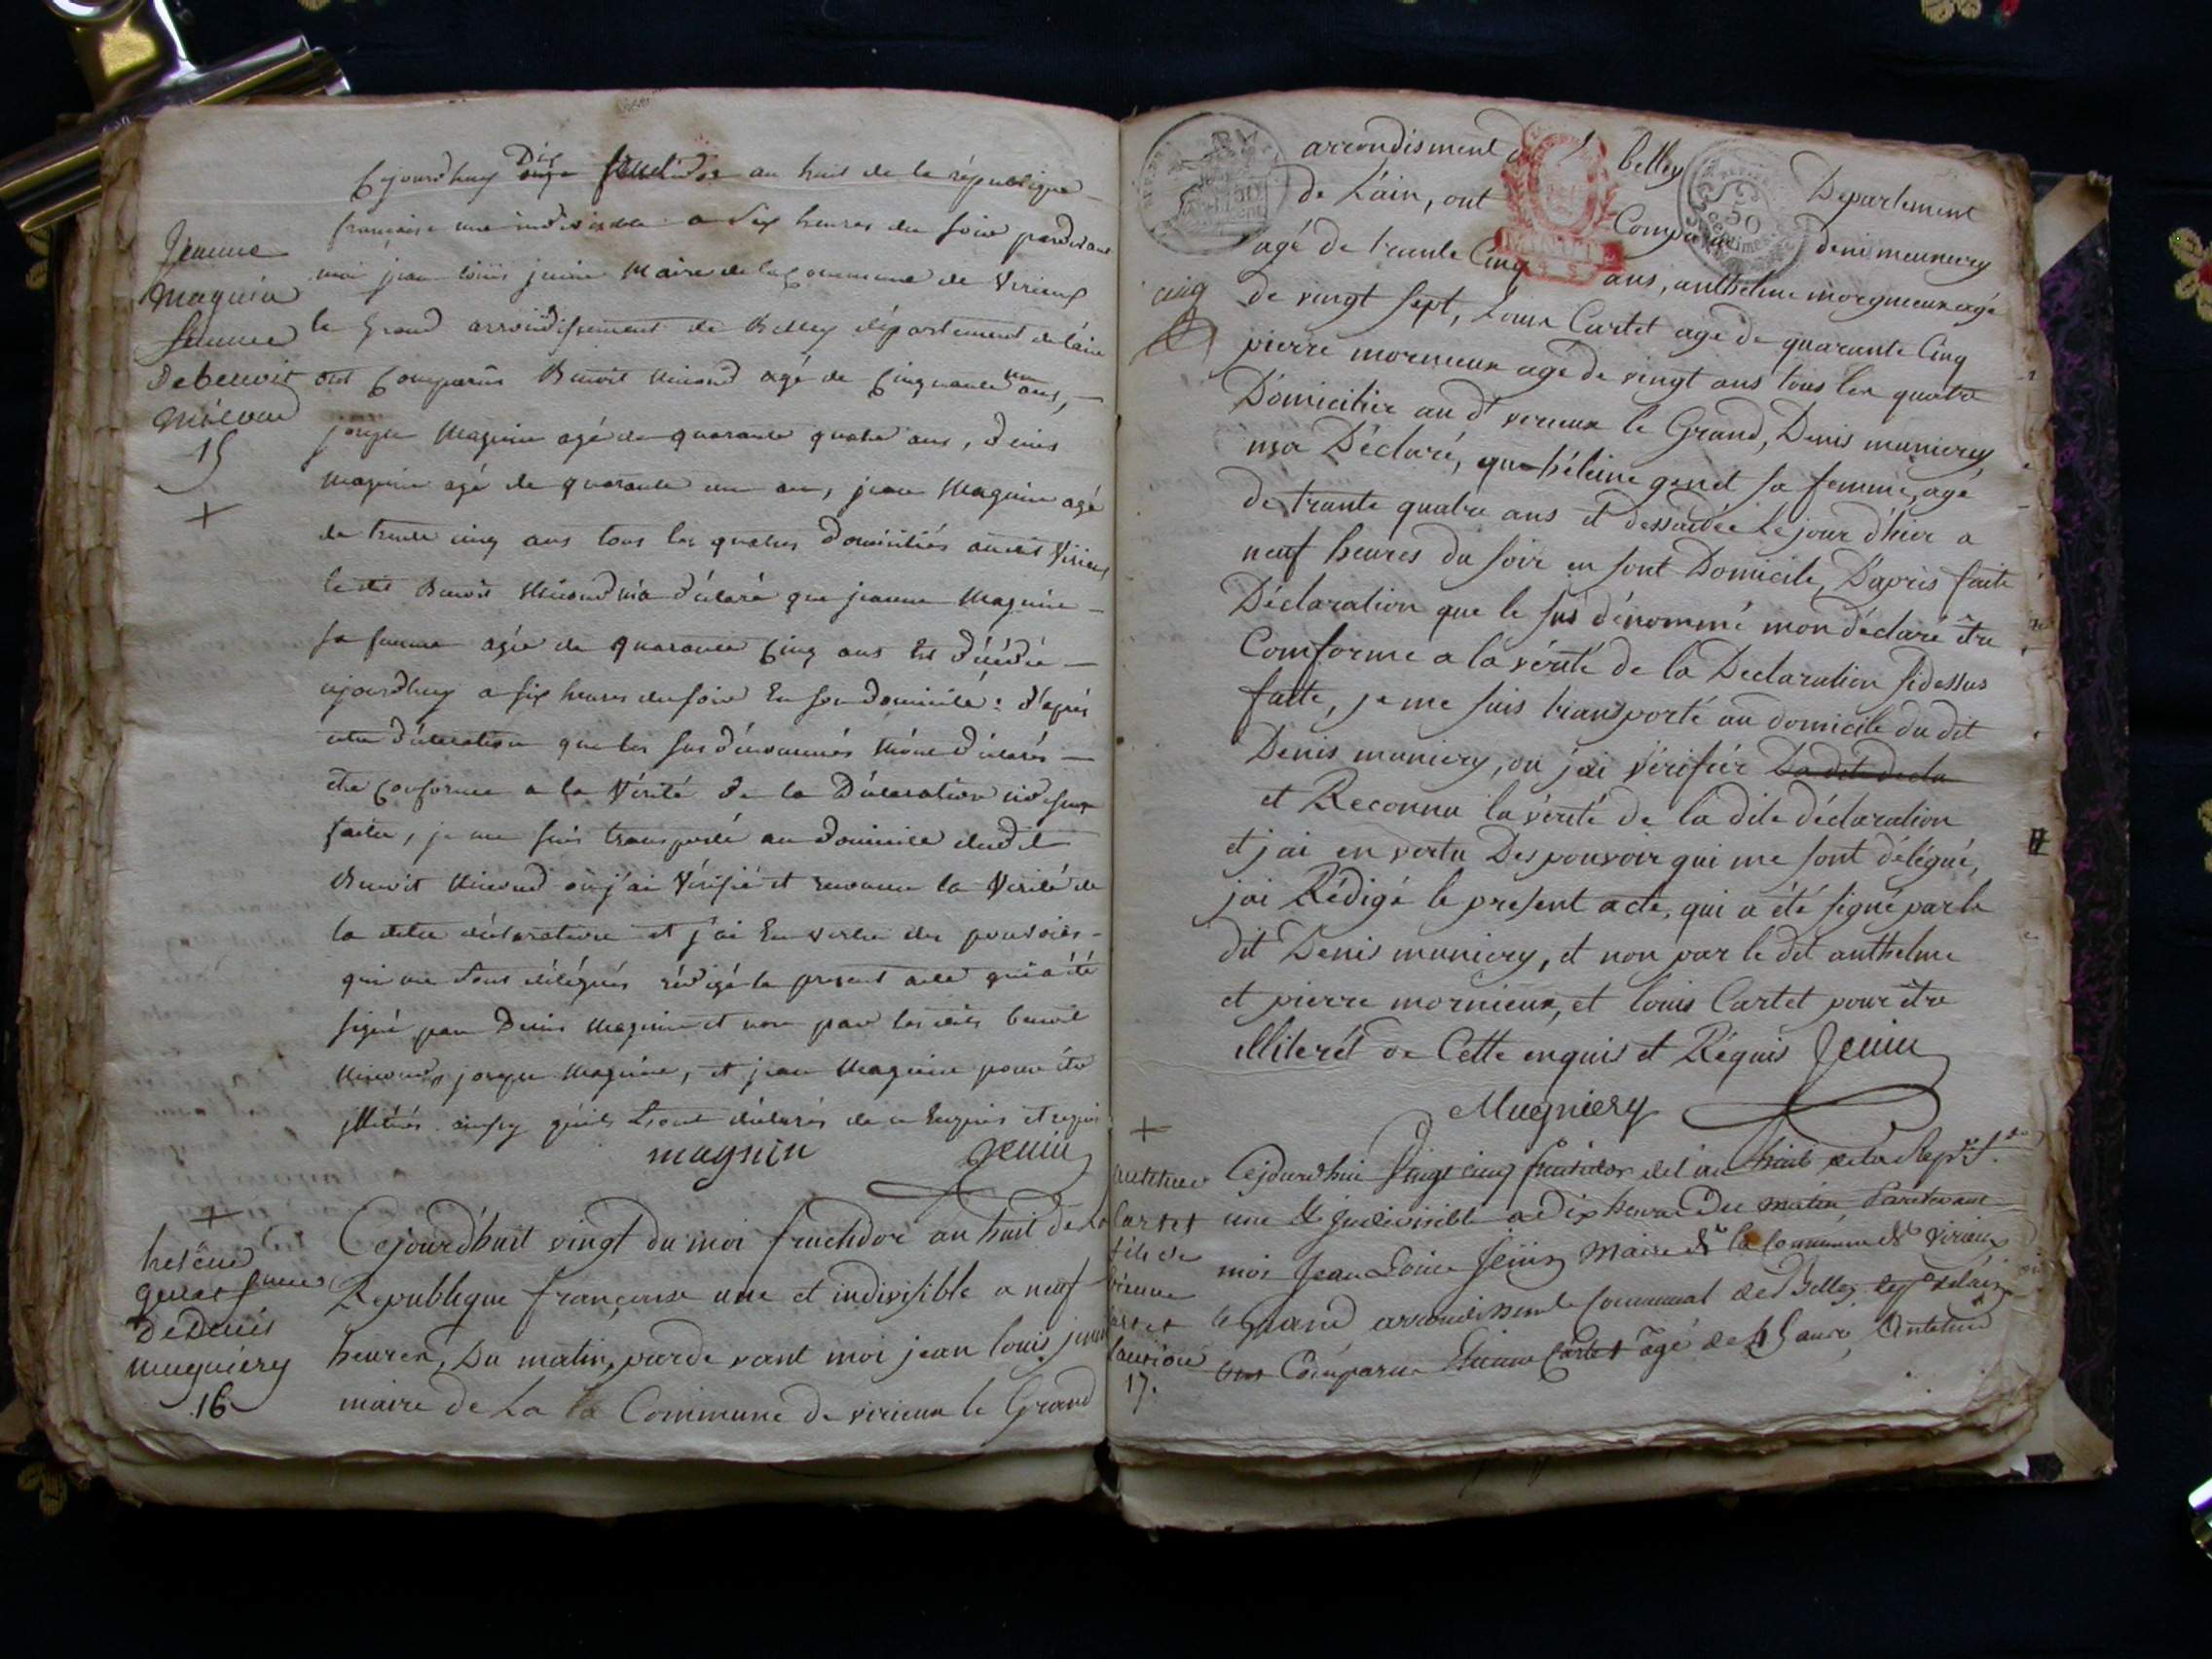 Cejourdhuy Dix fructidor an huit de la république
française une indivisible a Six heures du soir pardevant
moi jean louis jenin Maire de la Commune de Virieux
le Grand arrondissement de Belley département de l'ain
ont Comparus Benoit Micoud agé de Cinquante un ans,
joseph Magnin agé de quarante quatre ans, denis
Magnin agé de quarante un an, jean Magnin agé
de trente cinq ans tous les quatres domiciliés audit Virieux
le dit Benoit Micoud m'a déclaré que jeanne Magnin
sa femme agée de quarante Cinq ans Est décédée
ajourdhuy a six heures du soir En son domicile : d'après
cette déclaration que les sus dénommés m'ont déclarés
être Conforme a la Vérité de la Déclaration cidessus
faite, je me suis transporté au domicile dudit
Benoit Micoud où j'ai Vérifié et reconnu la Vérité de
la ditte déclaration et j'ai En vertu des pouvoirs
qui me sont délégués rédigé le present acte qui a été
signé par Denis Magnin et non par les dits benoit
Micoud, joseph Magnin, et jean Magnin pour être
illitérés ainsy qu'ils L'ont déclarés de ce Enquis et requis
magnin Jenin
Jeanne
Magnin
femme
De benoit
Micoud
15
+
Cejourdhuit vingt du moi fructidor an huit de la
Republique française une et indivisible a neuf
heures, Du matin, parde vant moi jean louis jenin
maire de La la Commune de virieux le Grand
+
helene
genet femme
de Denis
mugniery
16
arrondisment de belley Département
de L'ain, ont Comparu denis meuniery
agé de trante Cinq ans, anthelme morgnieux agé
de vingt sept, Louis Cartet agé de quarante Cinq
cinq
pierre mornieux agé de vingt ans tous les quatre
Domicilier au dt virieux le Grand, Denis muniery
m'a Déclaré, que héleine genet sa femme, agé
de trante quatre ans et dessedée Le jour d'hier a
neuf heures du soir en sont Domicile, D'après faite
Déclaration que le sus dénommé mon déclaré être
Comforme a la vérité de la Declaration sidessus
faitte, je me suis transporté au domicile du dit
Denis muniery, ou j'ai vérifiér La dite decla
et Reconnu la vérité de la dite déclaration
et j'ai en vertu Des pouvoir qui me sont délégué,
j'ai Rédigé le present acte, qui a été signé par le
dit Denis muniery, et non par le dit anthelme
et pierre mornieux, et louis Cartet pour être
illiterét de Cette enquis et Réquis Jenin
Mugniery
+
Cejourdhui Vingt cinq fructidor de l'an huit de la Rep.
une & Indivisible a dix heures du matin Pardevant
moi Jean Louis Jenin Maire de la Commune de Virieux
le Grand arrondissement Communal de Belley dept de l'ain
ont Comparu Etienne Cartet agé de 45 ans, Antelme
Antelme
Cartet
fils de
17.